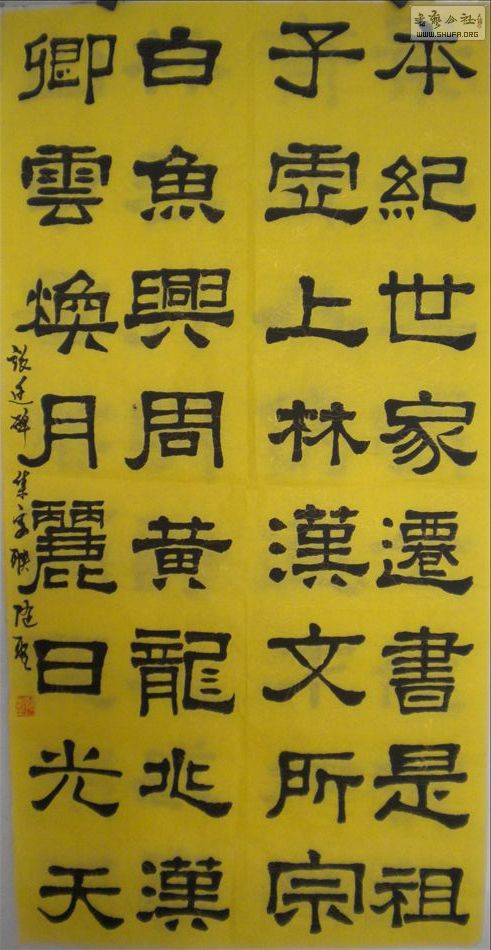 本紀世家遷書是祖
子虛上林漢文所宗
白魚興周黃龍兆漢
卿雲煥月麗日光天
張遷碑集字聯
書藝公社
WWW.SHUFA.ORG